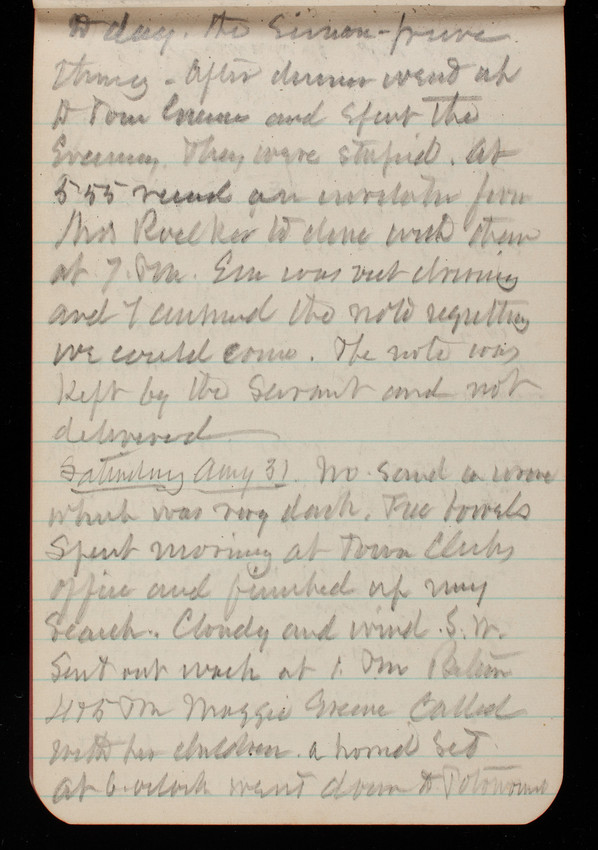 to day. the Simon-pure
thing - After dinner went up
to Tom Greenes and spent the
Evening. They were stupid. At
5 55 recvd an invitatn from
Mrs Roelker to dine with them
at 7. P.M. Em was out driving
and I answrd the note regretting
we could come. The note was
kept by the Servant and not
delivered
Saturday Aug 31. No
which was very dark. Two towels
Spent morning at Town Clerks
office and finished up my
Search. Cloudy and wind S.W.
Sent out wash at 1. PM
4 to 5 PM Maggie Greene Called
with her children. a horrid Set
At 6 oclock went down to Potowomut